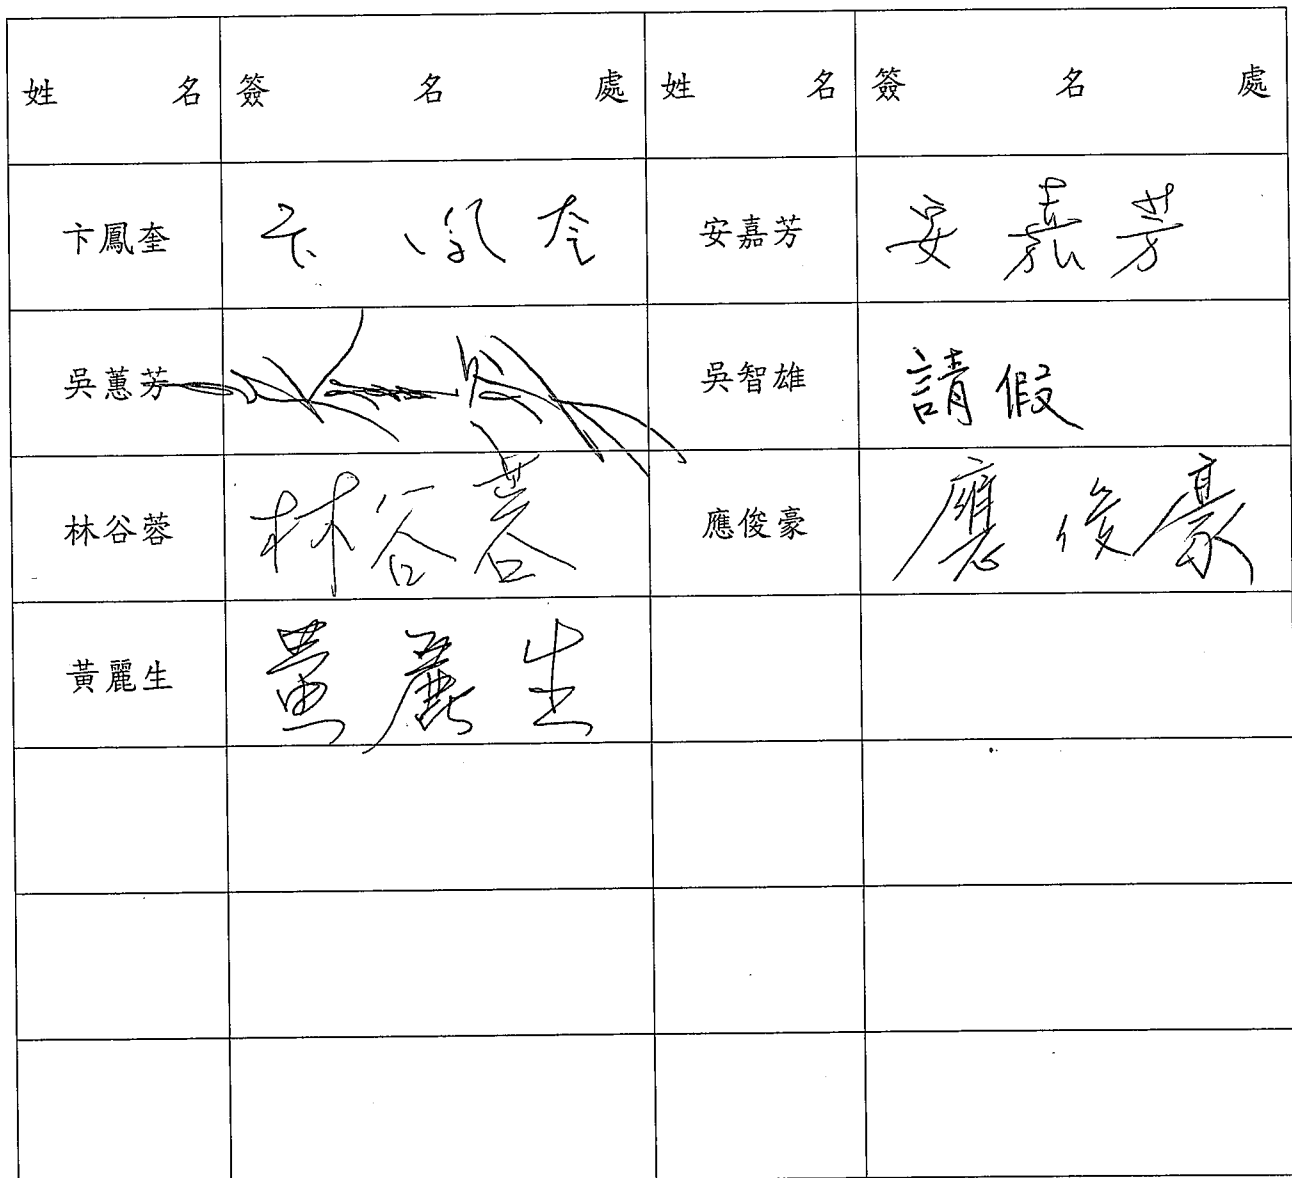 姓 名 簽 名 處 姓 名 簽 名 處
卞鳳奎 卞鳳奎 安嘉芳 安嘉芳
吳蕙芳 吳智雄 請假
林谷蓉 林谷蓉 應俊豪 應俊豪
黃麗生 黃麗生